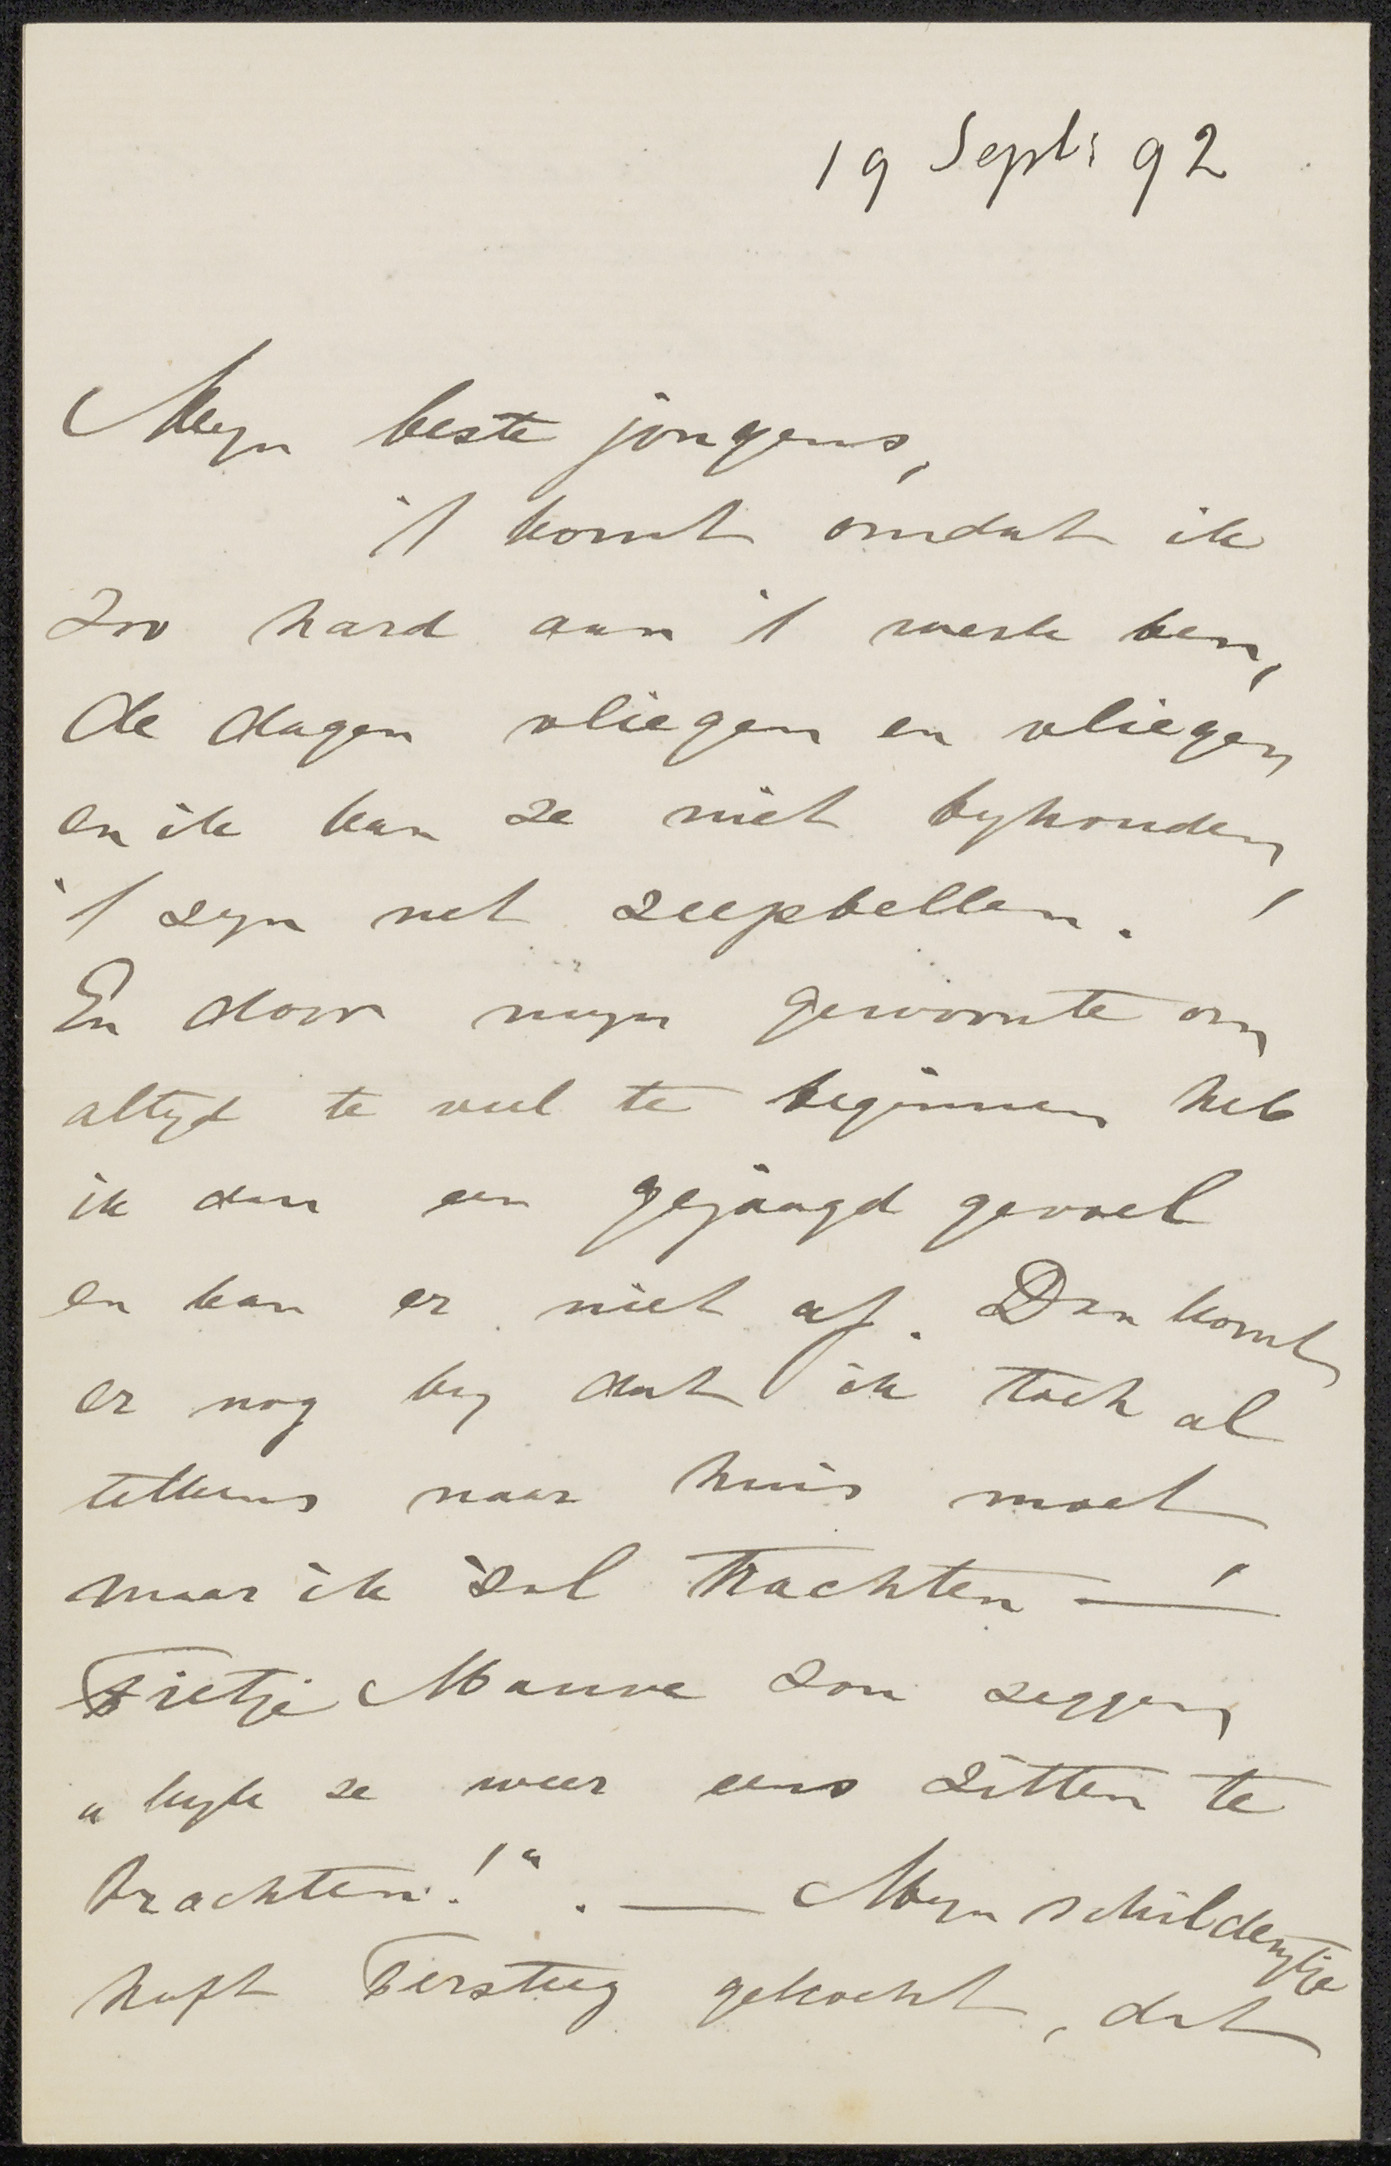 19 Sept: 92
Myn beste jongens,
't komt omdat ik
zoo hard aan 't werk ben,
de dagen vliegen en vliegen
en ik kan ze niet byhouden,
't zyn net zeepbellen. !
En door myn gewoonte om
altyd te veel te beginnen heb
ik dan een gejaagd gevoel
en kan er niet af. Dan komt
er nog by dat ik toch al
telkens naar huis moet
maar ik zal trachten — !
Fietje Mauve zou zeggen
„kyk ze weer eens zitten te
trachten!“. — Myn schilderytje
heeft Tersteeg gekocht, dat